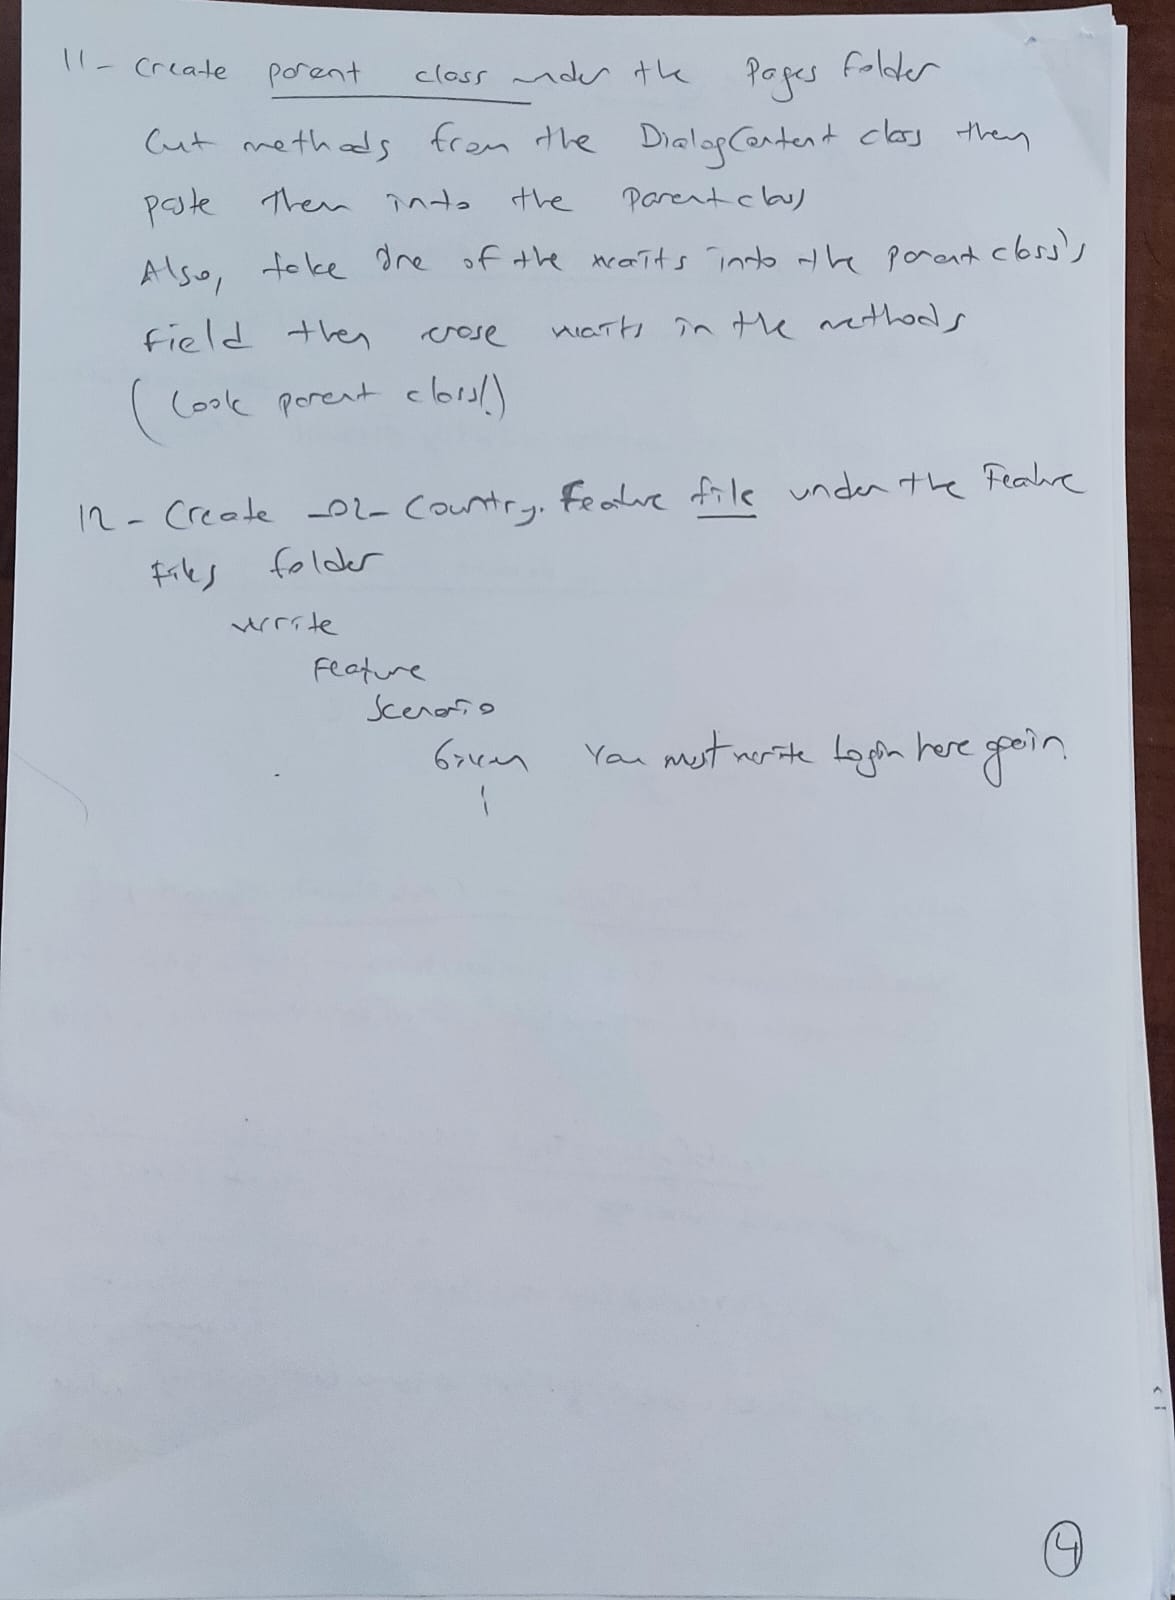 11- Create parent class under the Pages folder
Cut methods from the DialogContent class then
paste them into the Parent class
Also, take one of the waits into the parent class's
Field then erase waits in the methods
(Look parent class!)
12- Create _02_Country.Feature file under the Feature
Files folder
write
Feature
Scenario
Given You must write Login here again
4